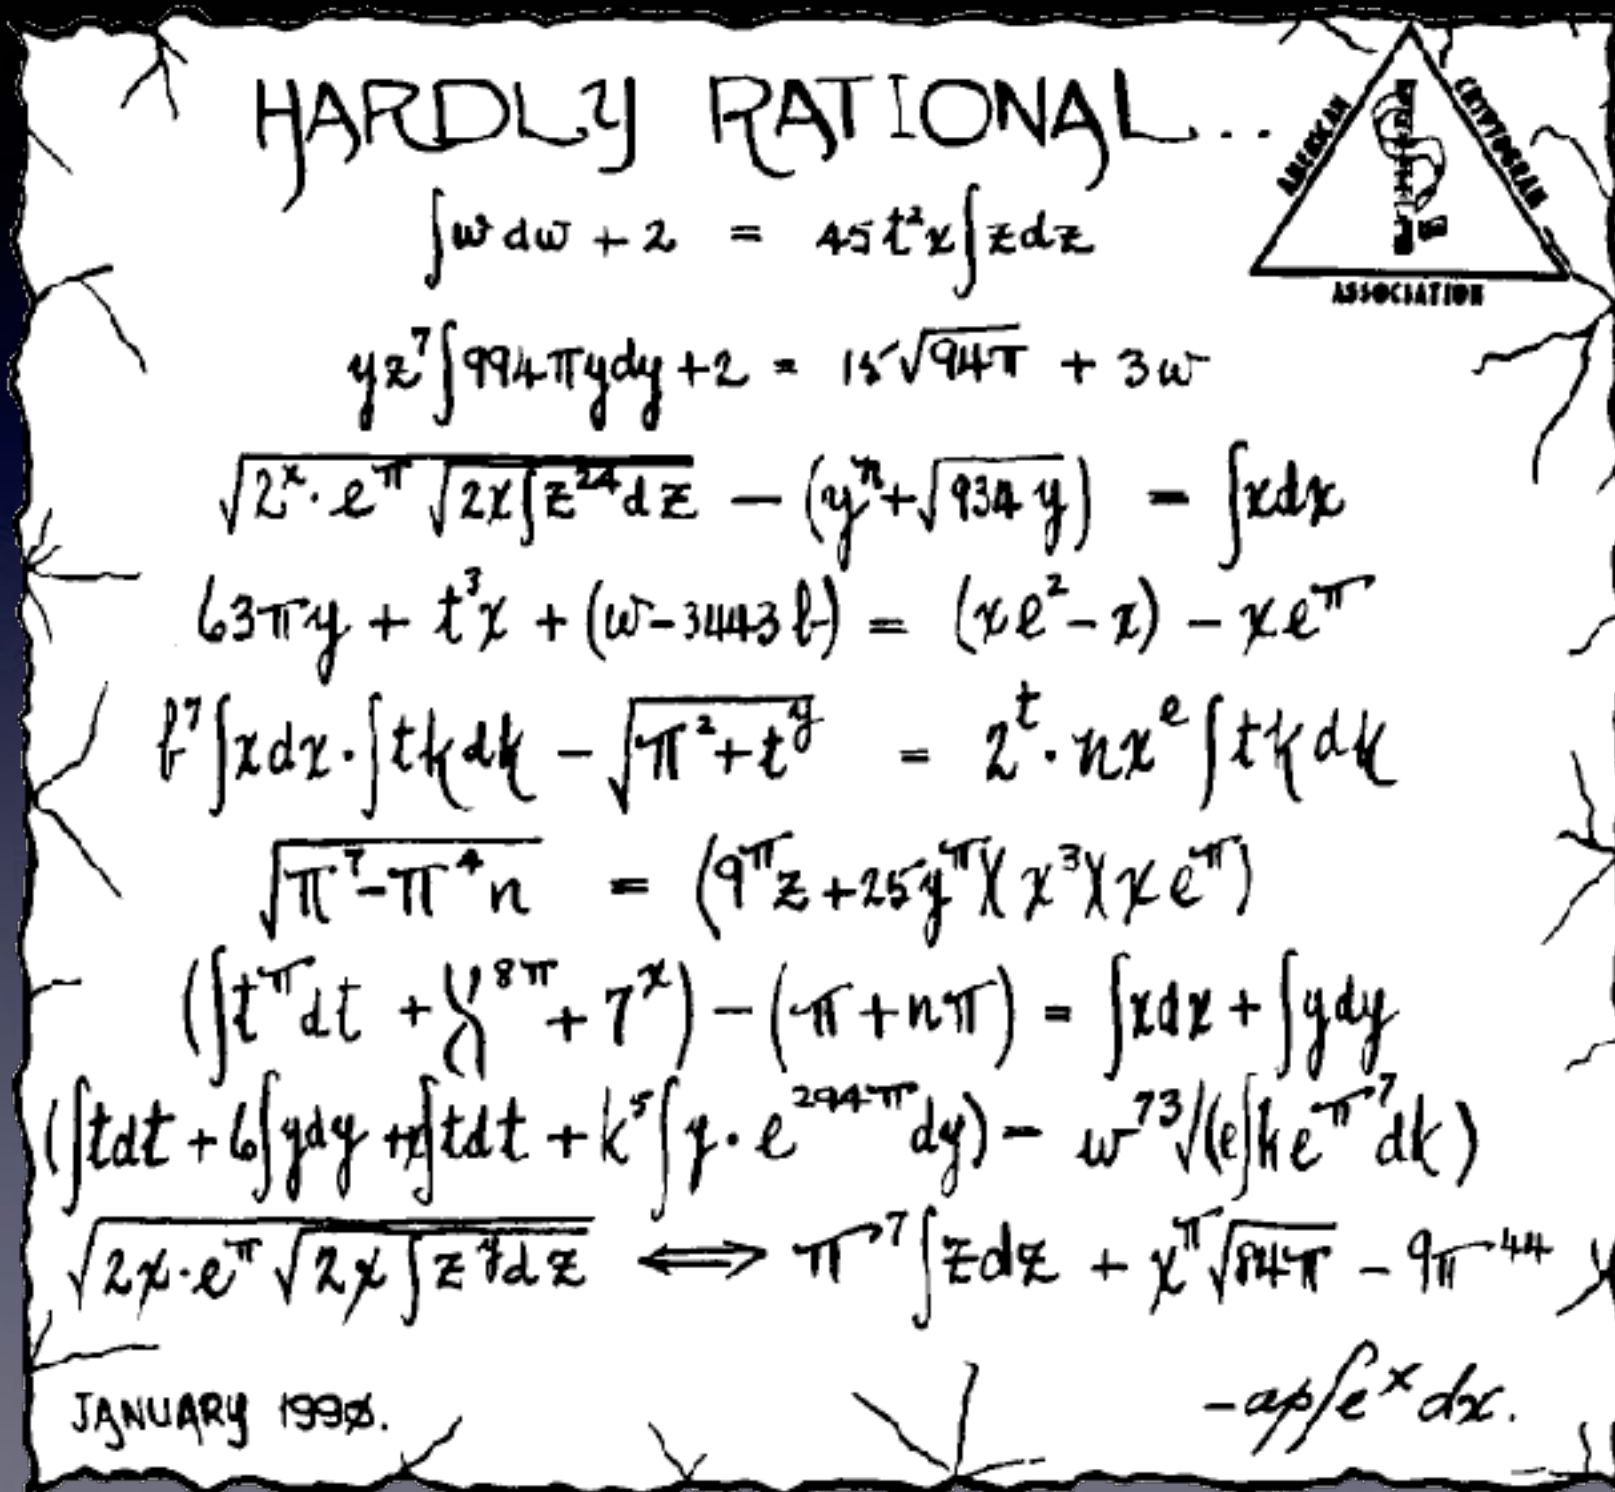 HARDLY RATIONAL...
AMERICAN
CRYPTOGRAM
ASSOCIATION
∫w dw + 2 = 45t²x∫zdz
yz⁷∫994πydy + 2 = 15√94π + 3w
√2ˣ·e^π √2x∫z²⁴dz − (yⁿ + √934y) = ∫xdx
63πy + t³x + (w − 3443b) = (xe² − x) − xe^π
b⁷∫xdx·∫tkdk − √π² + t^y = 2^t·nx^e∫tkdk
√π⁷ − π⁴n = (9^πz + 25y^π)(x³)(xe^π)
(∫t^πdt + 8π + 7ˣ) − (π + nπ) = ∫xdx + ∫ydy
(∫tdt + 6∫ydy + ∫tdt + k⁵∫y·e^294π dy) − w⁷³√(e∫ke^π⁷dk)
√2x·e^π √2x∫z^ydz ⟺ π⁷∫zdz + x^π√84π − 9π⁻⁴⁴
JANUARY 199ø.
-ap∫eˣ dx.